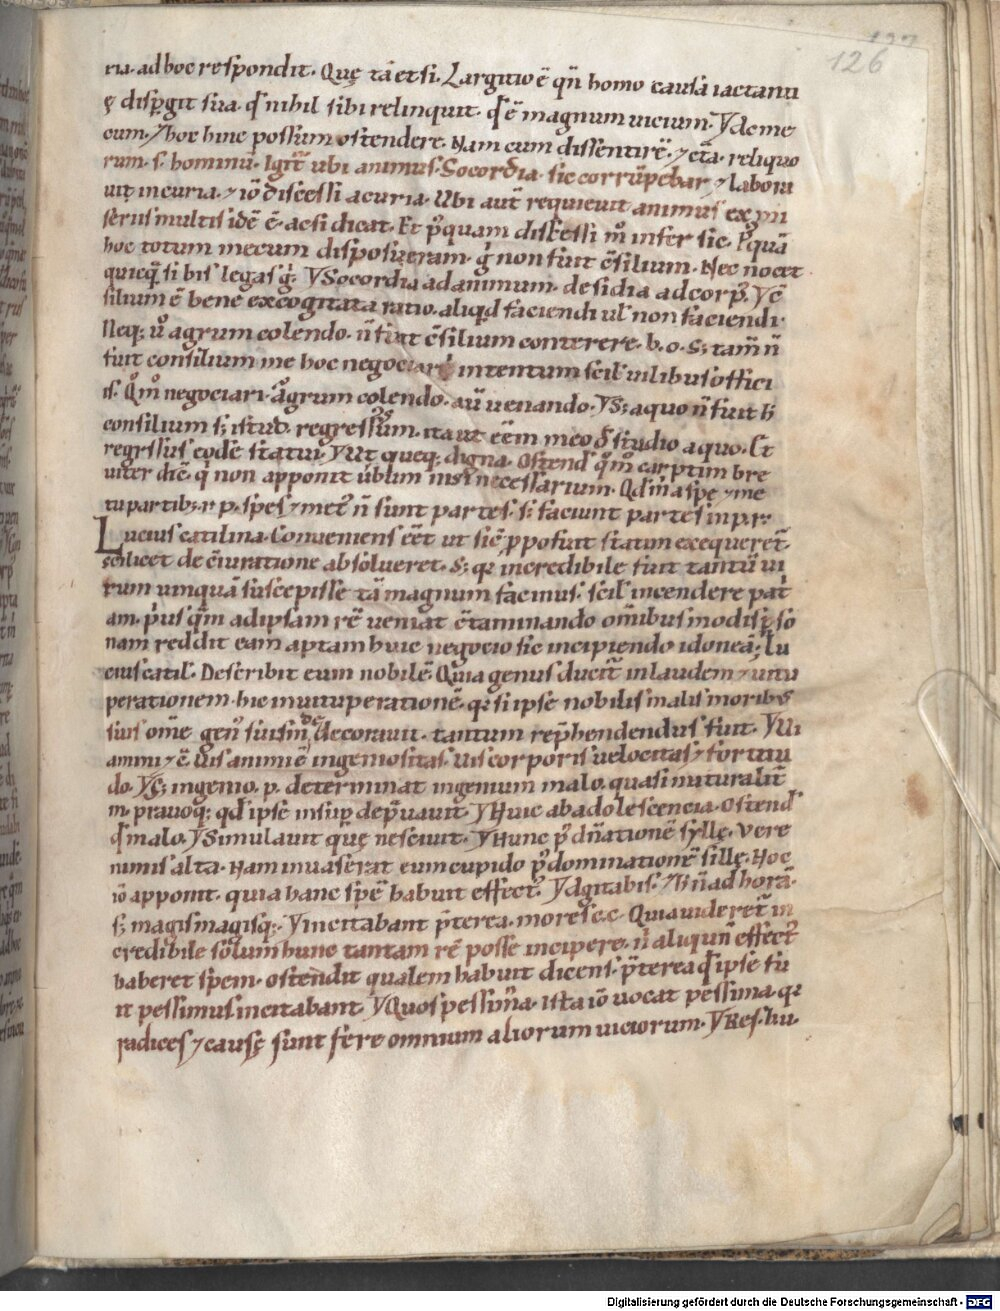 126
ria. ad hoc respondit. Quę tā etsi. Largitio ē qn̄ homo causā iactanti
ę disp̱git sua. qđ nihil sibi relinquit. qđ ē magnum uicium. Ac me
cum. ⁊ hoc hinc possum ostendere. Nam cum dissentirē. ⁊ cēta. reliquo
rum. s. hominū. Igit͛ ubi animus. Socordia. sic corrūpebar ⁊ labora
uit incuria. ⁊ iō discessi a curia. Ubi aut̄ requieuit animus ex mi
seriis multis idē ē. ac si dicat. Et p̄quam discessi m̄ infer sic. P̄quā
hoc totum mecum disposueram. g̊ non fuit c̄silium. Nec nocet
quicq̄ si bis legas g̊. Socordia ad animum. desidia ad corp̄. c̄
silium ē bene excogitata ratio. aliqd faciendi ul' non faciendi.
Neq; ů agrum colendo. n̄ fuit c̄silium conterere. b. o. S; tam̄ n̄
fuit consilium me hoc negociari intentum scil' uilibus offici
is. Qm̊ negociari. agrum colendo. aū uenando. S; a quo n̄ fuit h̄
consilium s; istud. regressum. ita ut eēm meo studio a quo. Et
regressus eodē statui. Ut queq; digna. Ostend' qm̊ carptim bre
uiter diē. q̇ non apponit ūblim nisi necessarium. Qd m̄ a spe ⁊ me
tu partib; r. p. spes ⁊ met͛ n̄ sunt partes. s; faciunt partes in p. r.
Lucius catilina. Conueniens eēt ut siċ p̱posuit statim exequeret͛.
scilicet de c̄iuratione absolueret. S; qa incredibile fuit tantū ui
rum umquā suscepisse tā magnum facinus. scil' incendere pat
am. p̍us qm̄ ad ipsam rē ueniat c̄taminando om̄ibus modis p̱so
nam reddit eam aptam huic negocio sic incipiendo idoneā; Lu
cius catil'. Describit eum nobilē. Quia genus ducit͛ in laudem ⁊ uitu
perationem. hic in uituperationē. qa si ipse nobilis malis moribus
suis om̄e gen͛ suum dedecorauit. tantum rep̄hendendus fuit. Ui
animi ⁊ c̄. Uis animi ē ingeniositas. Uis corporis uelocitas ⁊ fortitu
do. S; ingenio. p. determinat ingenium malo. quasi naturalit͛
m. prauoq; qđ ipse insup̱ dep̄uauit. Huic ab adolescencia. Ostend'
qđ malo. Simulauit quę nesciuit. Hunc p̄ dn̄ationē syllę. Vere
nimis alta. Nam inuaserat eum cupido p̄ dominationē sillę. Hoc
iō apponit. quia hanc spē habuit effect͛. Agitabis. n̄ ad horā.
s; magis magisq;. incitabant p̄terea. mores. c. c. Quia uideret͛ in
credibile solum hunc tantam rē posse incipere. n̄ aliqun̄ effect͛
haberet spem. ostendit qualem habuit dicens. p̄terea qđ ipse fu
it pessimus. incitabant. Quos pessima. Ista iō uocat pessima. qa
radices ⁊ causę sunt fere omnium aliorum uiciorum. Res. hu.
Digitalisierung gefördert durch die Deutsche Forschungsgemeinschaft - DFG